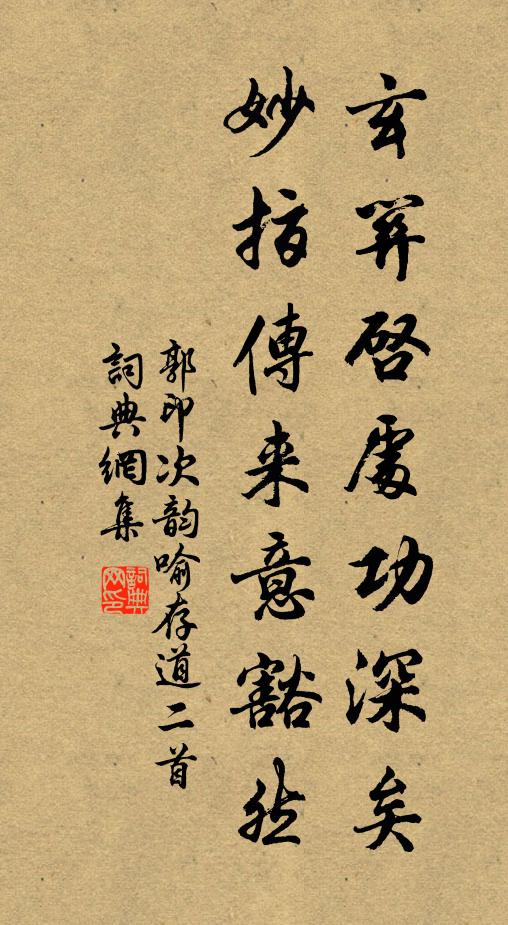 玄關啓處功深矣
妙指傳来意豁然
郭印次韵喻存道二首
詞典網集
詞典网印